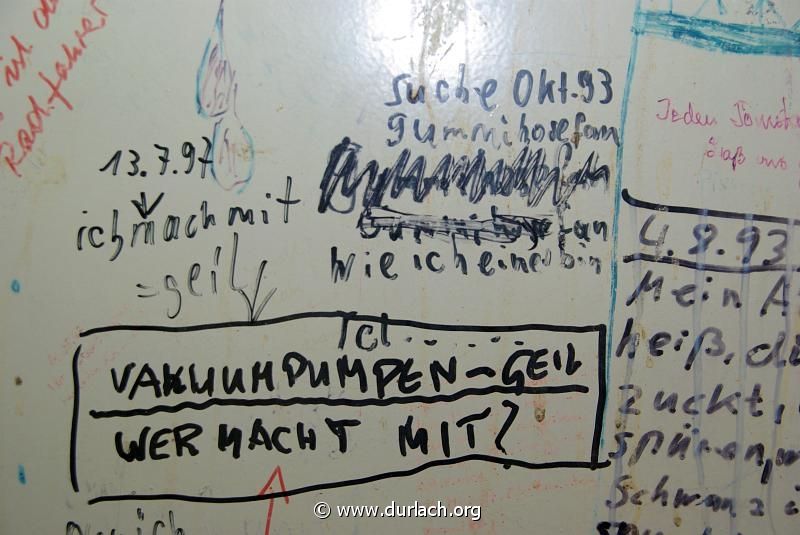 ist
Radfahrer
Suche Okt.93
gummihosefan
13.7.97
ich mach mit
fan
Wie ich einer bin
=geil
Ich......
VAKUUMPUMPEN-GEIL
WER MACHT MIT?
Jeden
4.8.93
Mein A
heiß, di
zuckt,
spüren,
Schwanz
© www.durlach.org